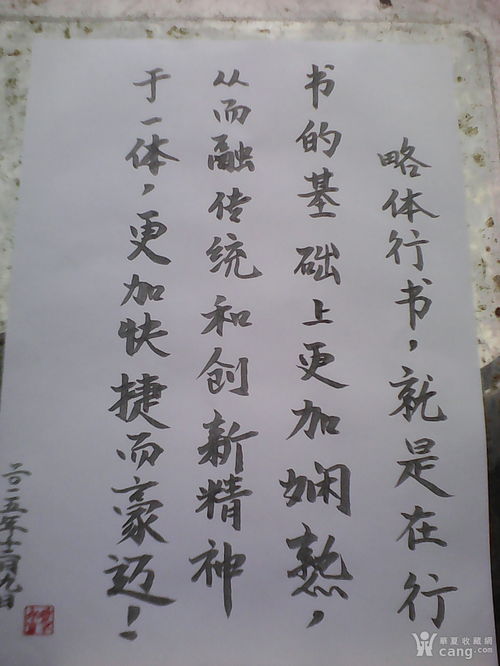 略体行书，就是在行
书的基础上更加娴熟，
从而融传统和创新精神
于一体，更加快捷而豪迈！
二〇一五年十二月九日
華夏收藏網
cang.com